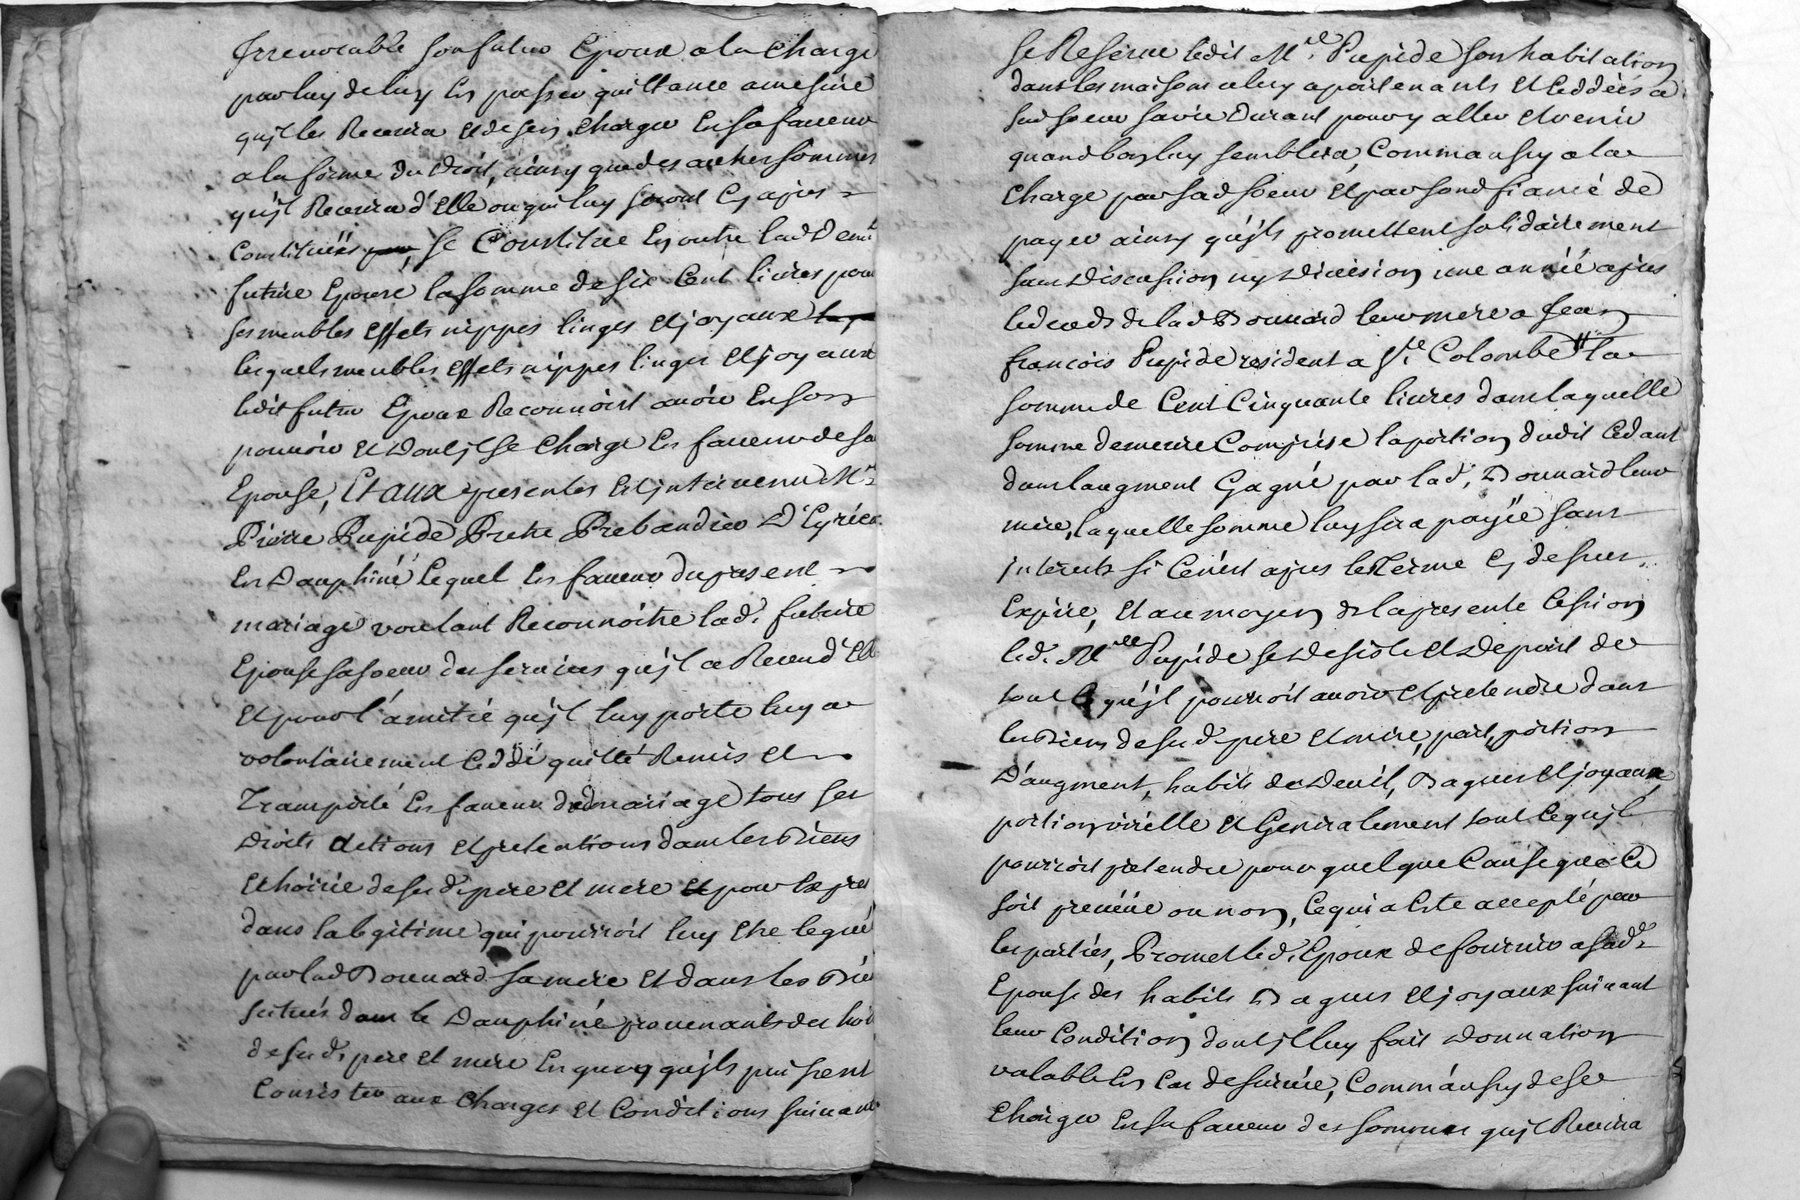 Irrevocable son futur Epoux a la Charge
par luy de luy En passer quittance amesure
quil les Recevra et de sen Charger En sa faveur
a la forme du droit, ainsy que des autres sommes
quil Recevra d'Elle ou qui luy seront Cy apres
Constituées, se Constitue En outre lad Demlle
future Epouse la somme de six Cent livres pour
ses meubles Effets nippes linges et joyaux
lesquels meubles Effets nippes linges et joyaux
ledit futur Epoux Reconnoist avoir En son
pouvoir et dont il se Charge En faveur de sa
Epouse, Et aux presentes Est intervenu Mre
Pierre Pupide Pretre Prebandier D'Eyrieu
En Dauphiné Lequel En faveur du present
mariage voulant Reconnoitre lad. future
Epouse sa soeur des services quil a Recu d'Elle
et pour l'amitié quil luy porte luy a
volontairement Ceddé quitté Remis et
Transporté En faveur dud mariage tous ses
droits actions et pretentions dans les Biens
et hoirie de feu d. pere et mere et pour Expres
dans la legitime qui pourroit luy etre legué
par lad Donnard sa mere et dans les Bie
situés dans le Dauphiné provenants des hoi
de feu d. pere et mere En quoy quils puissent
Consister aux Charges et Conditions suivant
se Reserve ledit Mre Pupide son habitation
dans les maisons a luy apartenants et Ceddées a
sad soeur sa vie durant pour y aller et venir
quand bon luy semblera, Comm'aussy a la
Charge par sad soeur et par son d fiancé de
payer ainsy quils promettent solidairement
sans discussion ny division une année apres
le deceds de lad Donnard leur mere a Jean
françois Pupide resident a Ste Colombe # la
somme de Cent Cinquante livres dans laquelle
somme demeure Comprise la portion dudit Cedant
dans laugment Gagné par lad. Donnard leur
mere, laquelle somme luy sera payée sans
interets si Ce n'est apres le Terme Cy dessus
Expiré, et au moyen de la presente Cession
led. Mre Pupide se desiste et depart de
tout Ce quil pourroit avoir et pretendre dans
les Biens de feu d. pere et mere, part, portion
D'augment, habits de Deuil, Bagues et joyaux
portion virille et Generalement tout Ce quil
pourroit pretendre pour quelque Cause que Ce
soit prevüe ou non, Ce qui a Esté accepté par
les parties, Promet led. Epoux de fournir a sad.
Epouse des habits Bagues et joyaux suivant
leur Condition dont il luy fait donnation
valable En Cas de survie, Comm'aussy de se
Charger En sa faveur des sommes quil Recevra